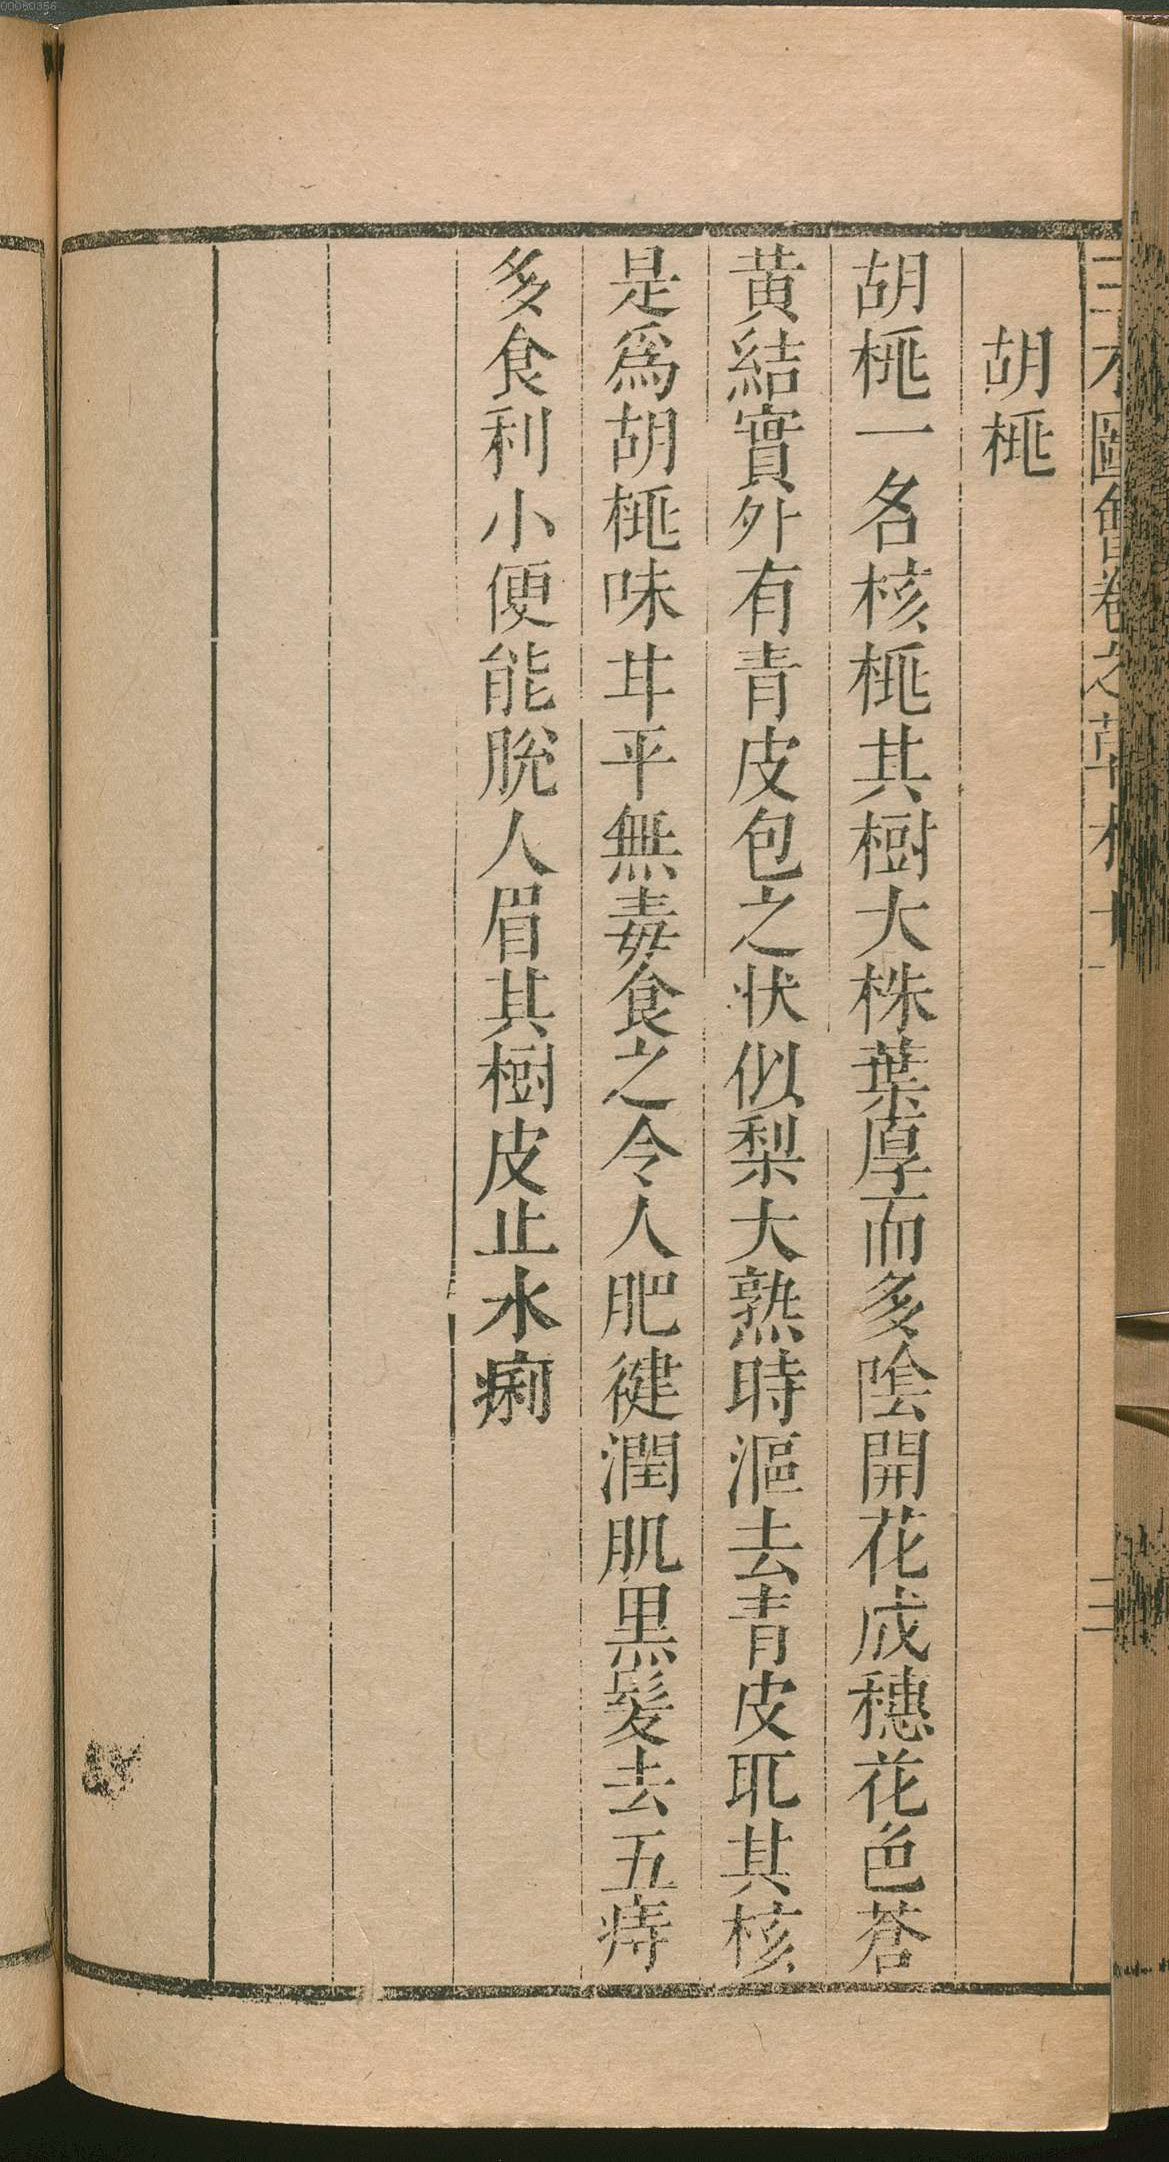 三才圖會卷之草木十
三
胡桃
胡桃一名核桃其樹大株葉厚而多陰開花成穗花色蒼
黄結實外有青皮包之状似梨大熟時漚去青皮取其核
是為胡桃味甘平無毒食之令人肥健潤肌黒髪去五痔
多食利小便能脱人眉其樹皮止水痢
00080356